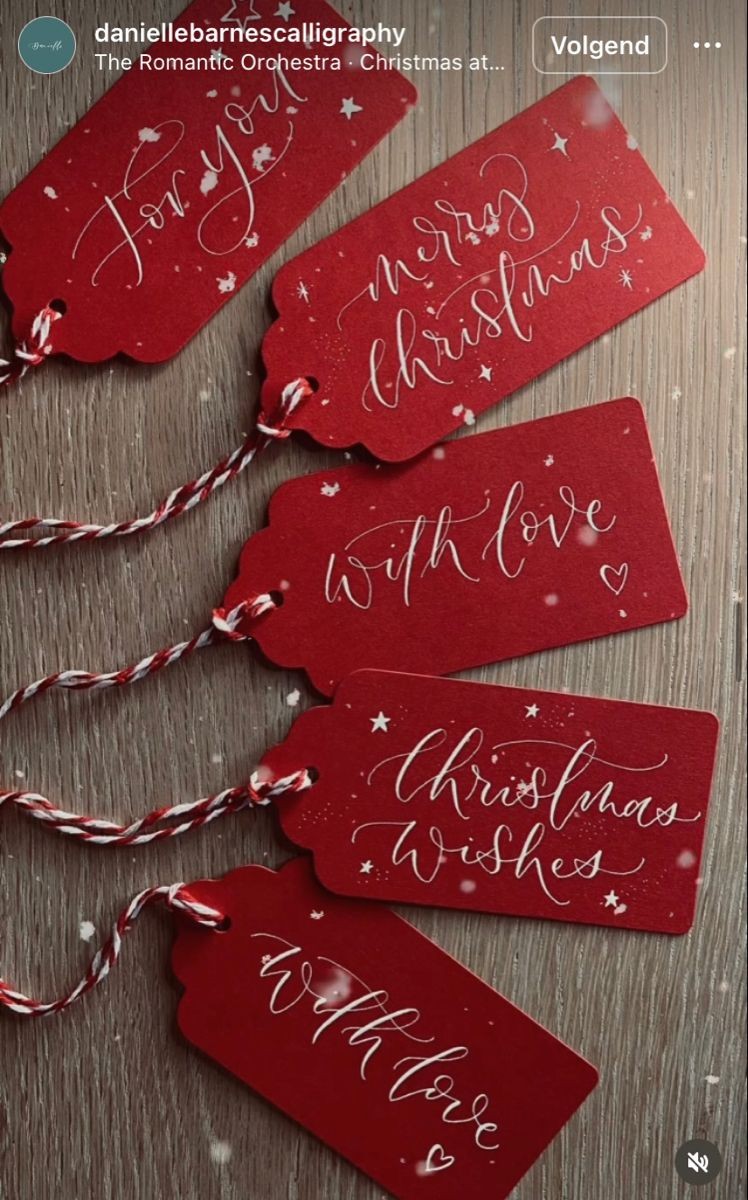 daniellebarnescalligraphy
The Romantic Orchestra · Christmas at...
Volgend
For you
merry
Christmas
with love
Christmas
Wishes
With love